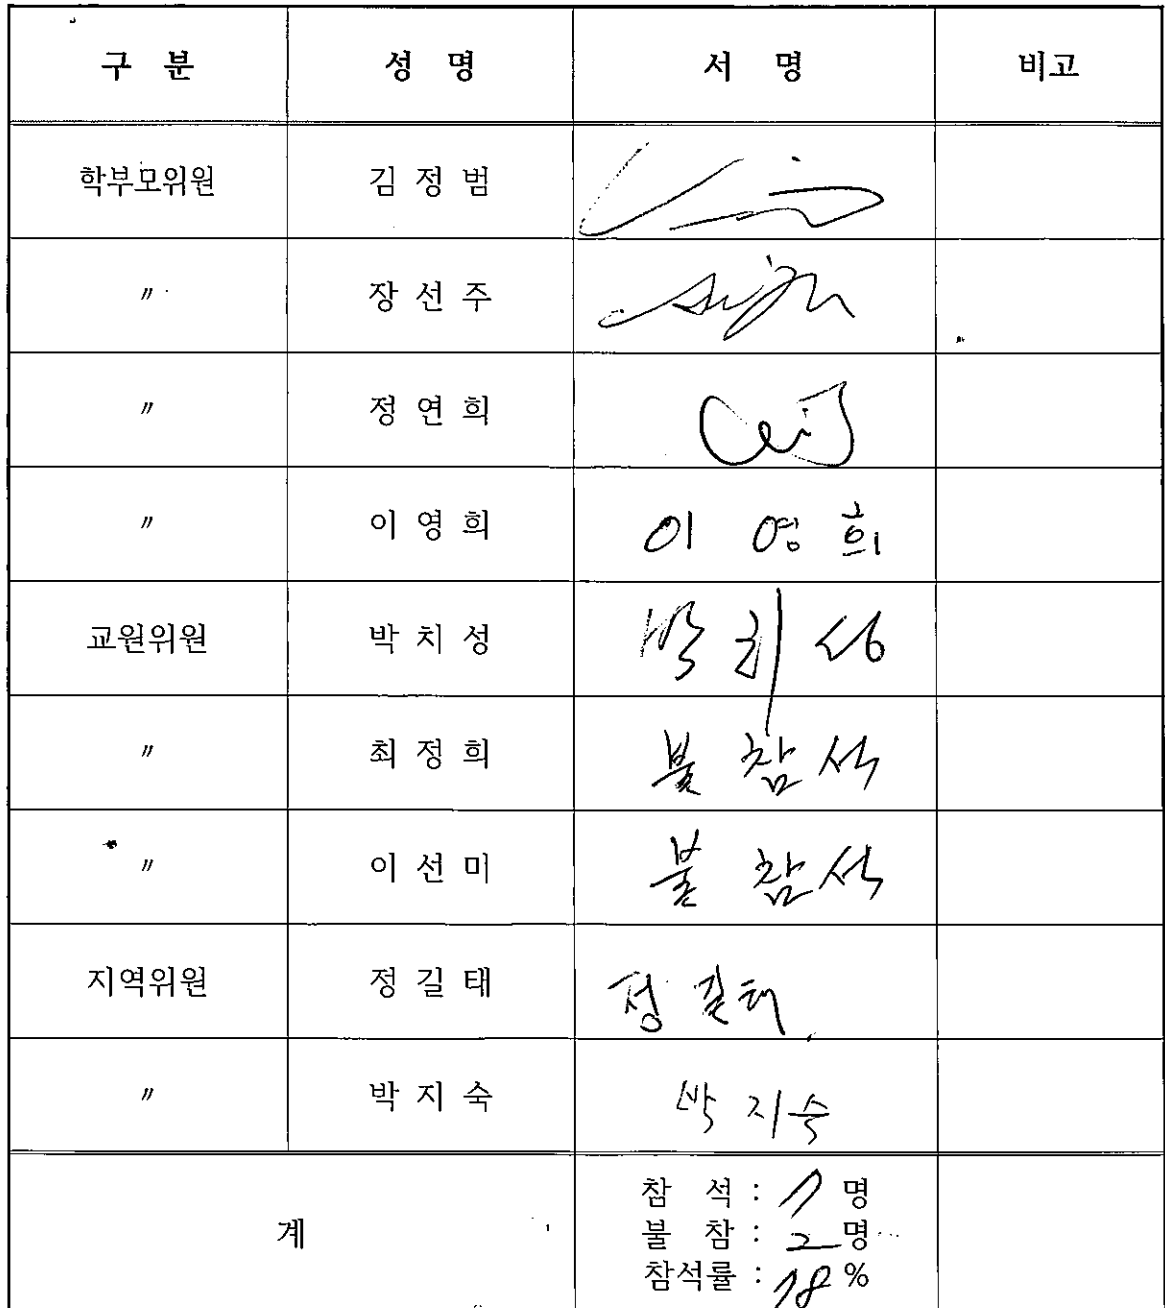 구 분 성 명 서 명 비고
학부모위원 김 정 범
〃 장 선 주
〃 정 연 희
〃 이 영 희 이 영 희
교원위원 박 치 성 박 치 성
〃 최 정 희 불 참 석
〃 이 선 미 불 참 석
지역위원 정 길 태 정 길 태
〃 박 지 숙 박 지 숙
계
참 석 : 7 명
불 참 : 2 명
참석률 : 78 %